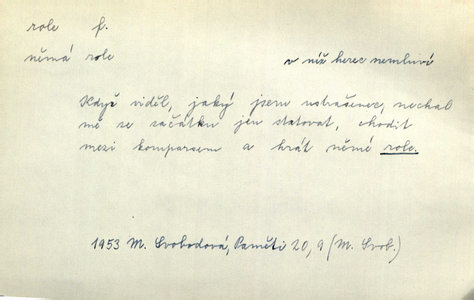 role f.
němá role v níž herec nemluví
Když viděl, jaký jsem nastrašenec, nechal
mě ze začátku jen statovat, chodit
mezi komparsem a hrát němé role.
1953 M. Svobodová, Paměti 20, 9 (M. Svob.)